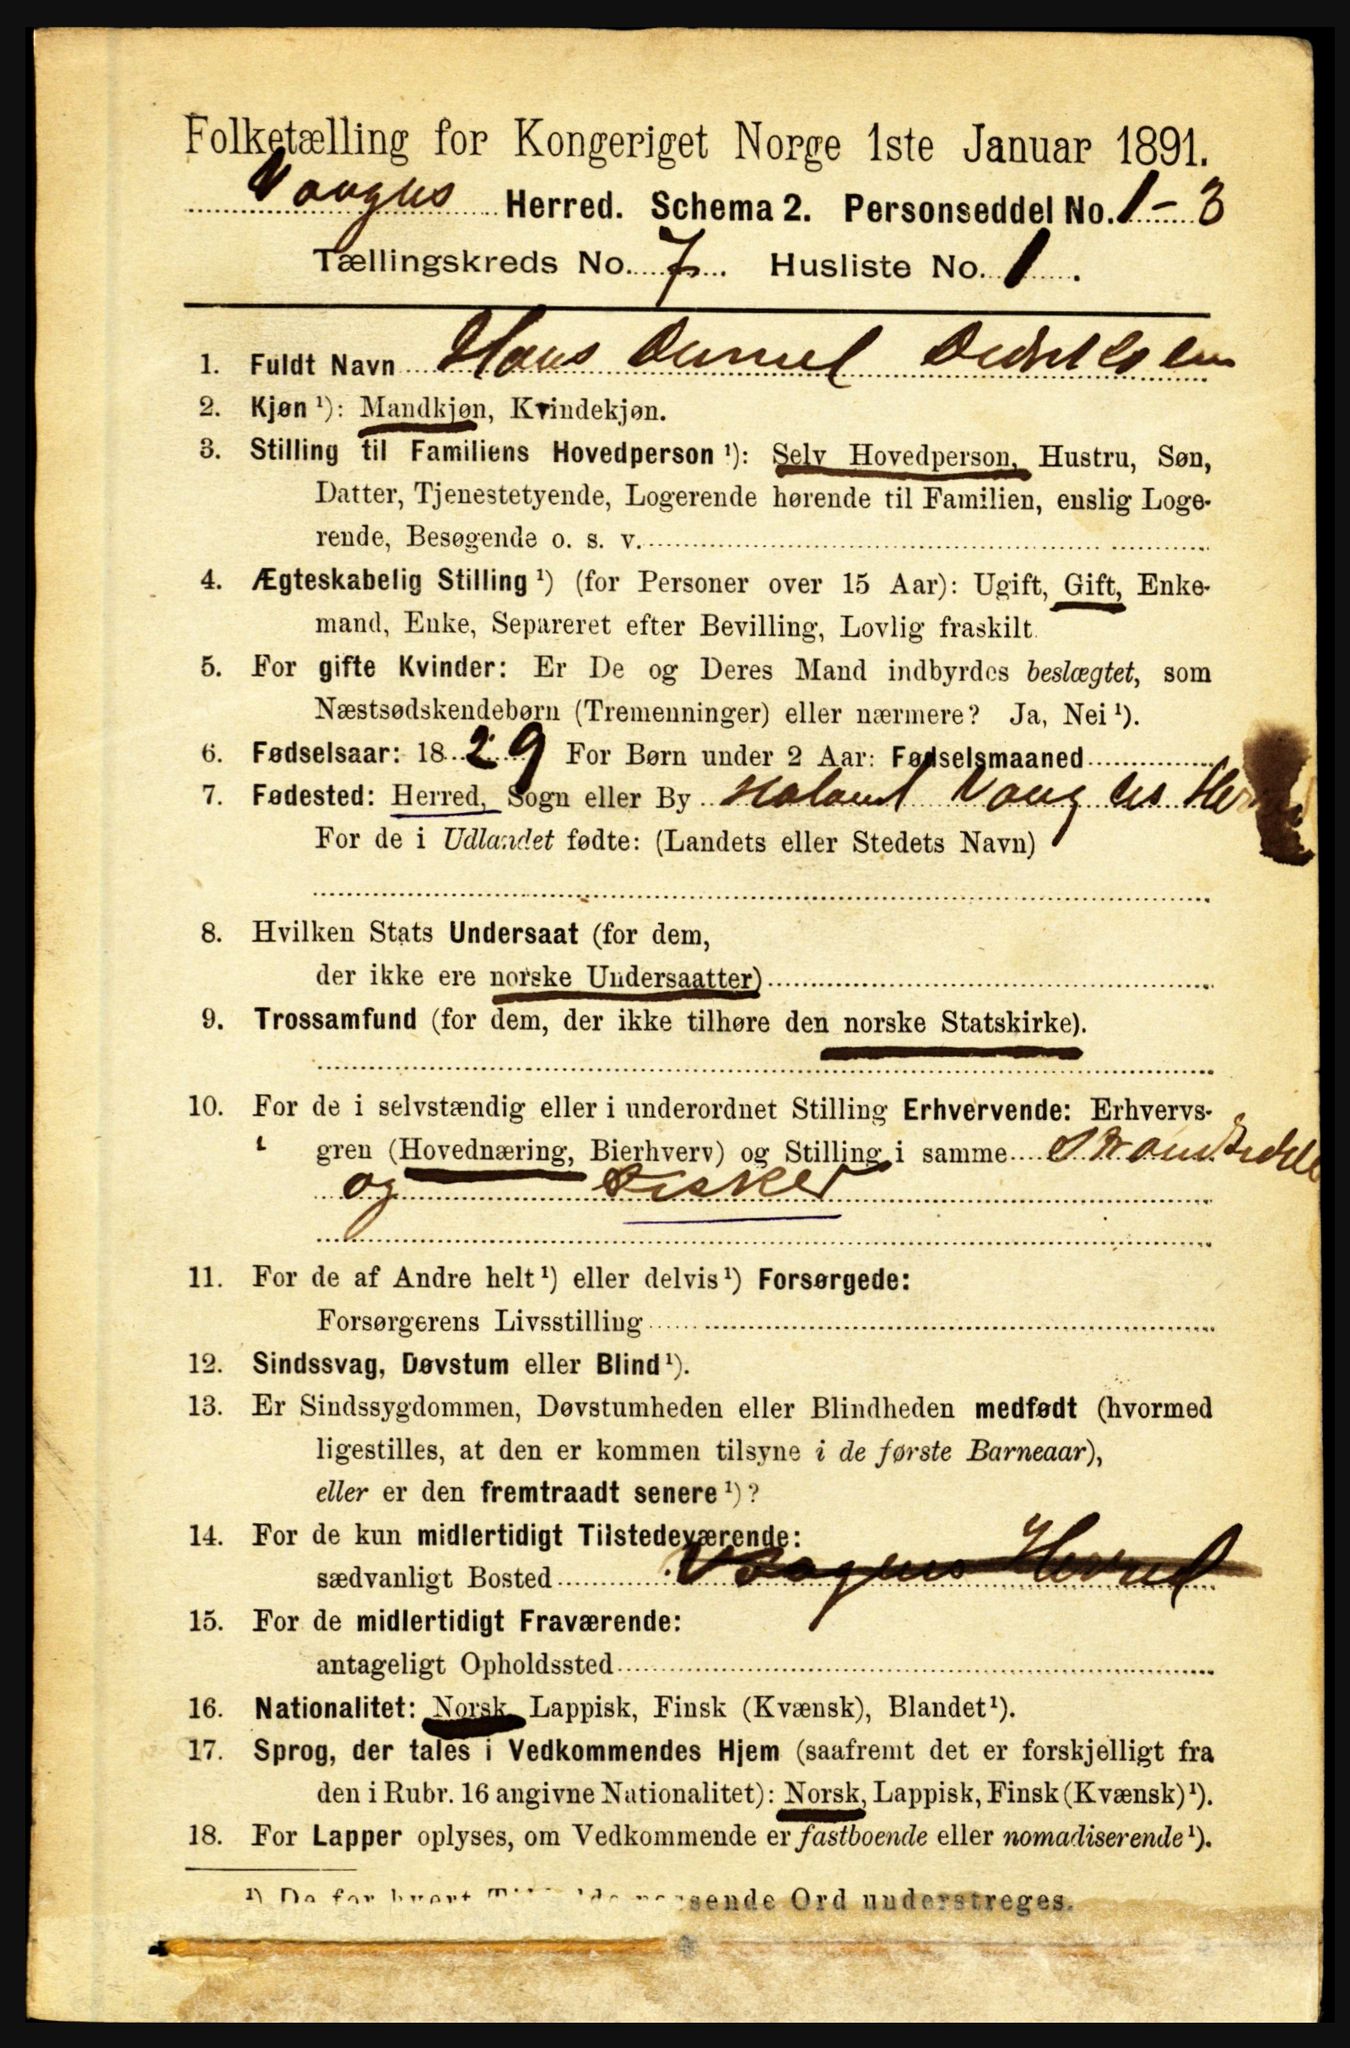 Folketælling for Kongeriget Norge 1ste Januar 1891.
Vaagns Herred. Schema 2. Personseddel No. 1-3
Tællingskreds No. 7. Husliste No. 1.
1. Fuldt Navn Hans Didriksen
2. Kjøn ¹): Mandkjøn, Kvindekjøn.
3. Stilling til Familiens Hovedperson ¹): Selv Hovedperson, Hustru, Søn,
Datter, Tjenestetyende, Logerende hørende til Familien, enslig Loge-
rende, Besøgende o. s. v.
4. Ægteskabelig Stilling ¹) (for Personer over 15 Aar): Ugift, Gift, Enke-
mand, Enke, Separeret efter Bevilling, Lovlig fraskilt.
5. For gifte Kvinder: Er De og Deres Mand indbyrdes beslægtet, som
Næstsødskendebørn (Tremenninger) eller nærmere? Ja, Nei ¹).
6. Fødselsaar: 1829 For Børn under 2 Aar: Fødselsmaaned
7. Fødested: Herred, Sogn eller By
For de i Udlandet fødte: (Landets eller Stedets Navn)
8. Hvilken Stats Undersaat (for dem,
der ikke ere norske Undersaatter)
9. Trossamfund (for dem, der ikke tilhøre den norske Statskirke).
10. For de i selvstændig eller i underordnet Stilling Erhvervende: Erhvervs-
gren (Hovednæring, Bierhverv) og Stilling i samme Strandsidder
og Fisker
11. For de af Andre helt ¹) eller delvis ¹) Forsørgede:
Forsørgerens Livsstilling
12. Sindssvag, Døvstum eller Blind ¹).
13. Er Sindssygdommen, Døvstumheden eller Blindheden medfødt (hvormed
ligestilles, at den er kommen tilsyne i de første Barneaar),
eller er den fremtraadt senere ¹)?
14. For de kun midlertidigt Tilstedeværende:
sædvanligt Bosted Vaagns Herred
15. For de midlertidigt Fraværende:
antageligt Opholdssted
16. Nationalitet: Norsk, Lappisk, Finsk (Kvænsk), Blandet ¹).
17. Sprog, der tales i Vedkommendes Hjem (saafremt det er forskjelligt fra
den i Rubr. 16 angivne Nationalitet): Norsk, Lappisk, Finsk (Kvænsk) ¹).
18. For Lapper oplyses, om Vedkommende er fastboende eller nomadiserende ¹).
¹) De for hvert Ord understreges.